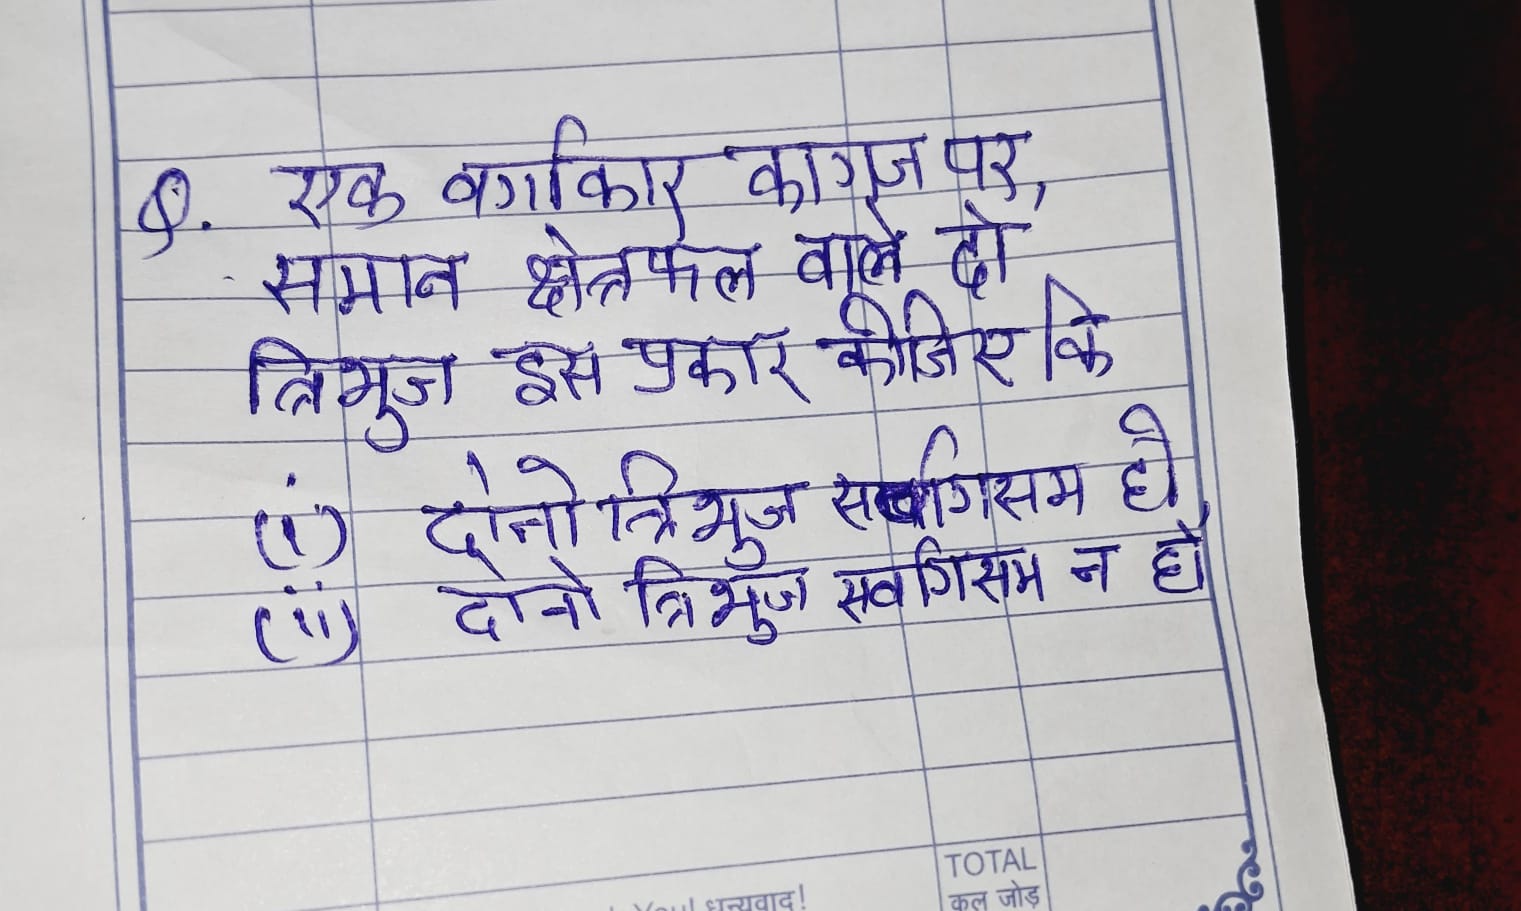 Q. एक वर्गाकार कागज पर,
समान क्षेत्रफल वाले दो
त्रिभुज इस प्रकार कीजिए कि
(i) दोनो त्रिभुज सर्वागिसम हो
(ii) दोनो त्रिभुज सर्वागिसम न हो
TOTAL
You! धन्यवाद!
कुल जोड़